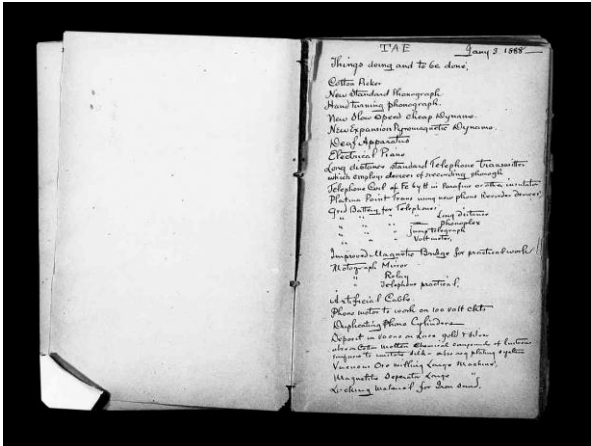 TAE Jany 3 1888
Things doing and to be done,
Cotton Picker
New Standard Phonograph.
Hand turning phonograph.
New Slow Speed Cheap Dynamo.
New Expansion Pyromagnetic Dynamo.
Deaf Apparatus
Electrical Piano
Long distance standard Telephone Transmitter
which employs devices of recording phonogh
Telephone Coil of Fe by tt in Parafine or other insulator
Platina Point Trans using new phono Recorder devices,
Grid Battery for Telephones,
" " " " Long distance
" " " Phonoplex
" " " Jump Telegraph
" " " Voltmeter,
Improved Magnetic Bridge for practical work
Motograph Mirror
" Relay
" Telephone practical,
Artificial Cable
Phono motor to work on 100 volt ckts
Duplicating Phono Cylinders
Deposit in vacuo on Lace, gold & silver
also on Cotton molten chemical compounds of lustrous
surfaces to imitate silk - also reg plating system
Vacuous Ore milling Large Machine,
Magnetite Separator Large "
Locking material for Iron sand,